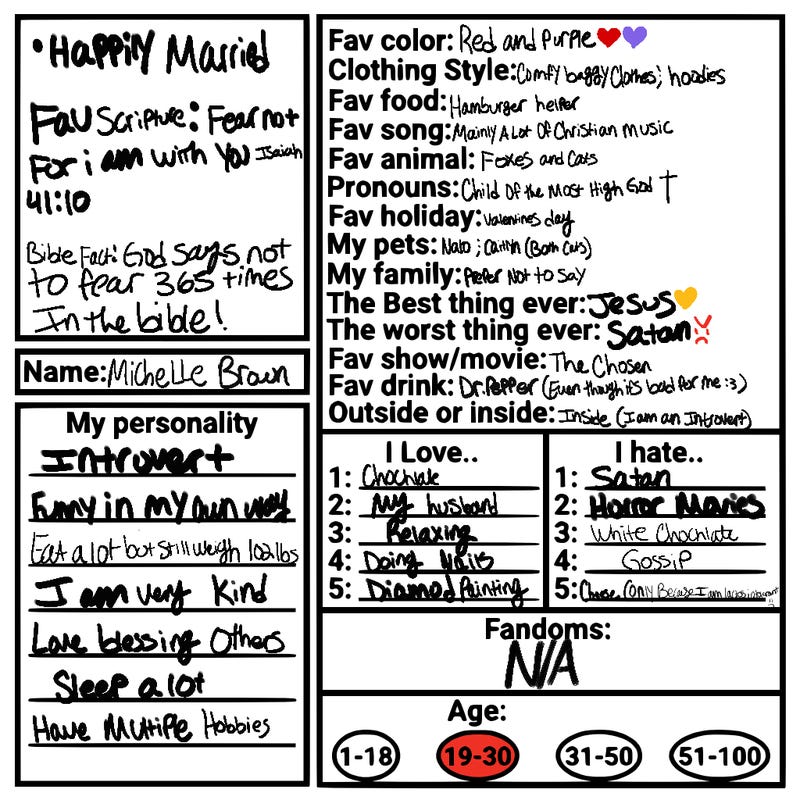 • Happily Married
Fav Scripture: Fear not
For i am with You Isaiah
41:10
Bible Fact: God says not
to fear 365 times
In the bible!
Name: Michelle Brown
My personality
Introvert
Funny in my own way
Eat a lot but still weigh 102lbs
I am very kind
Love blessing Others
Sleep a lot
Have Mutiple Hobbies
Fav color: Red and Purple ❤💜
Clothing Style: Comfy baggy Clothes; hoodies
Fav food: Hamburger helper
Fav song: Mainly A Lot Of Christian music
Fav animal: Foxes and Cats
Pronouns: Child Of the Most High God †
Fav holiday: Valentines day
My pets: Nalo ; Caitlyn (Both Cats)
My family: Prefer Not to Say
The Best thing ever: Jesus 💛
The worst thing ever: Satan 💢
Fav show/movie: The Chosen
Fav drink: Dr.Pepper (Even though it's bad for me :3)
Outside or inside: Inside (I am an Introvert)
I Love..
1: Chochlate
2: My husband
3: Relaxing
4: Doing Nails
5: Diamod Painting
I hate..
1: Satan
2: Horror Movies
3: White Chochlate
4: Gossip
5: Cheese (Only Because I am
Fandoms:
N/A
Age:
1-18 19-30 31-50 51-100